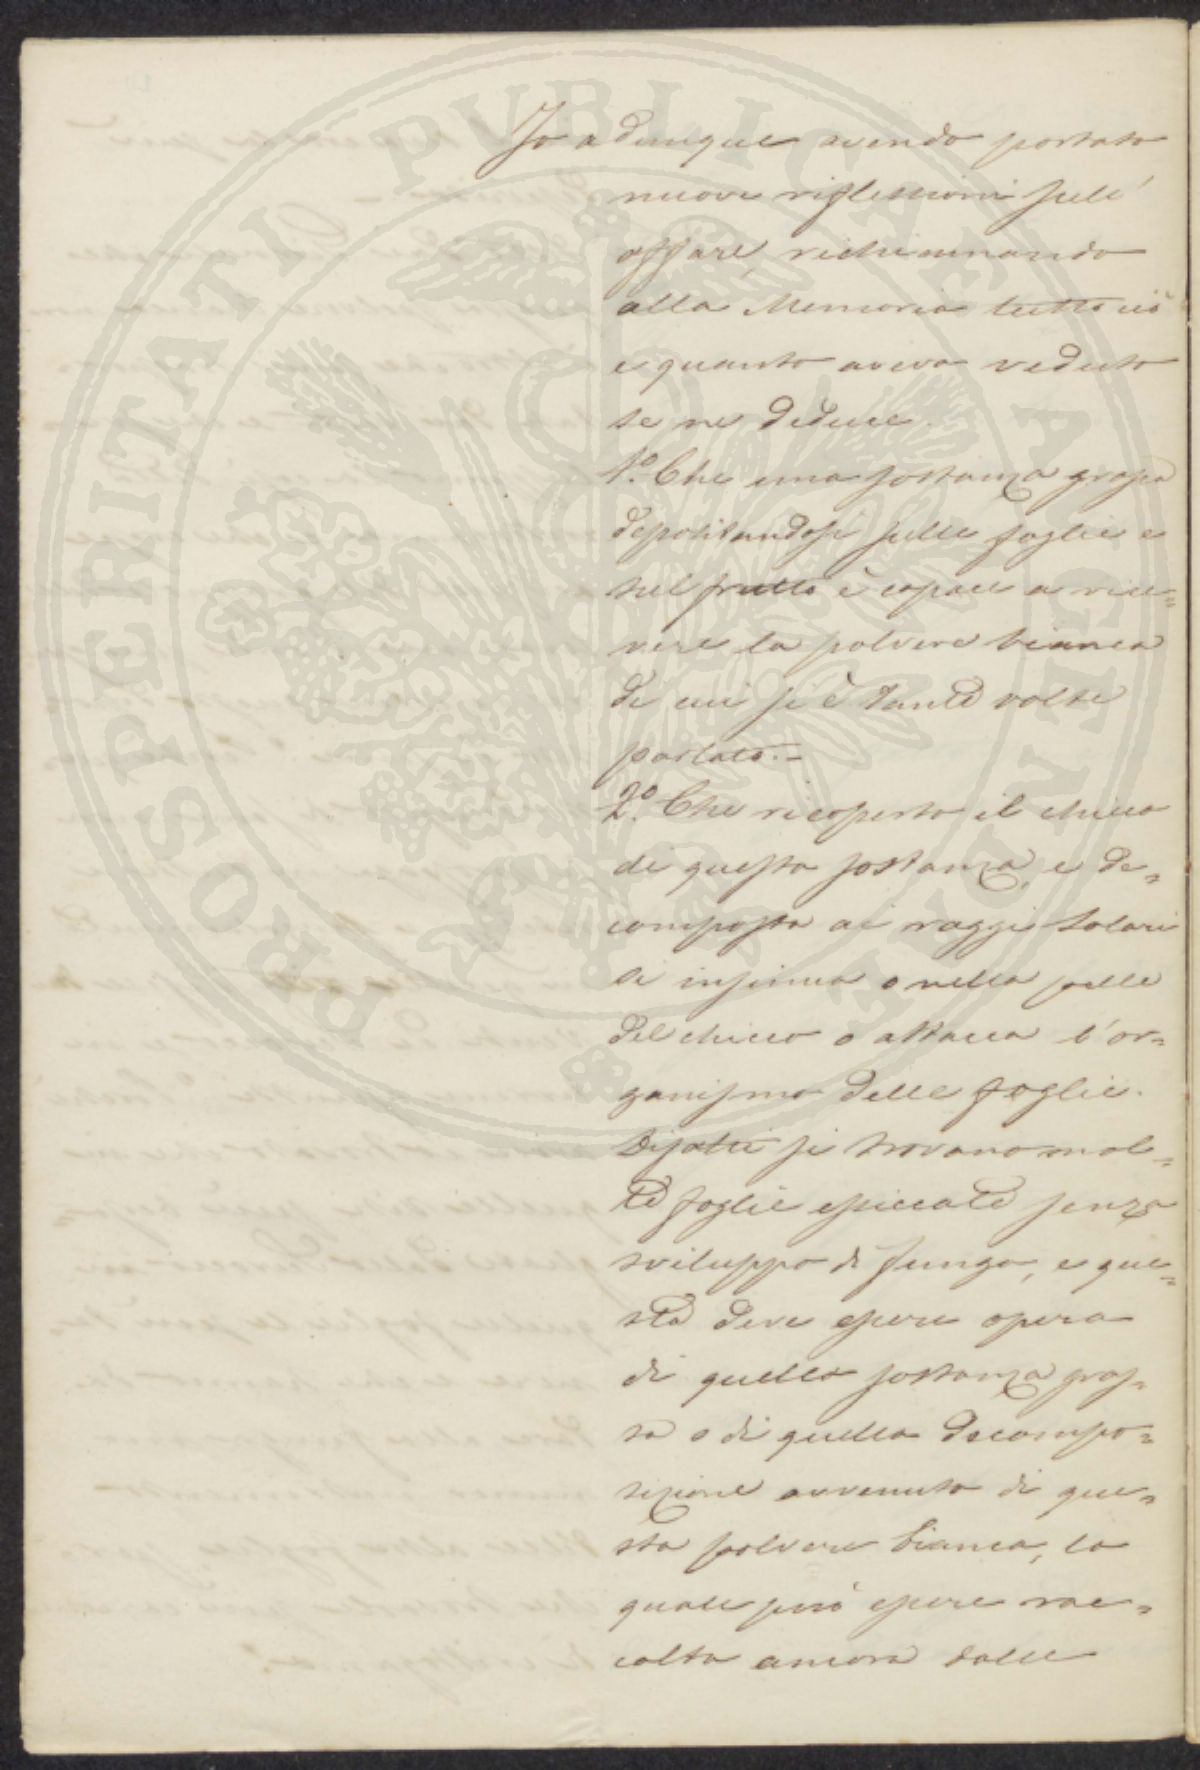 Io adunque avendo portato
nuove riflessioni sull'
affare, richiamando
alla Memoria tutto ciò
e quanto aveva veduto
se ne deduce.
1.° Che una sostanza grassa
depositandosi sulle foglie e
sul frutto è capace a rice=
vere la polvere bianca
di cui si è tante volte
parlato.=
2.° Che ricoperto il chicco
di questa sostanza, e de=
composta ai raggi Solari
si insinua o nella pelle
del chicco o attacca l'or=
ganismo delle foglie.
Difatti si trovano mol=
te foglie essiccate senza
sviluppo di fungo, e que=
sta deve essere opera
di quella sostanza gras=
sa o di quella decompo=
sizione avvenuta di que=
sta polvere bianca, la
quale può essere rac=
colta ancora dalle
PROSPERITATI PUBLICAE AUGENDAE